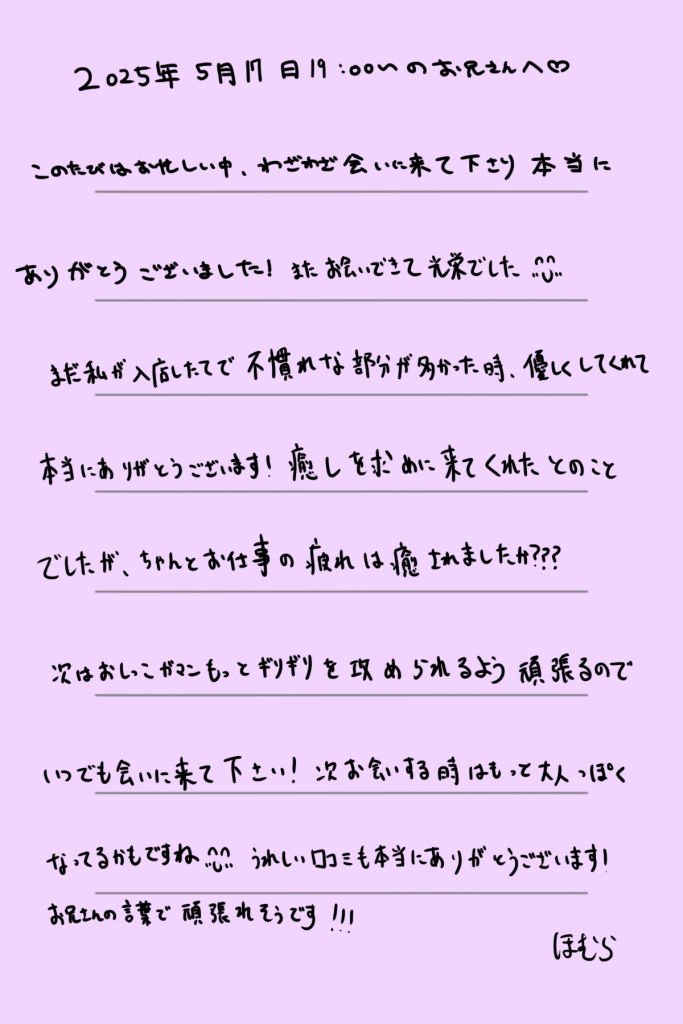 2025年5月17日19:00〜のお兄さんへ♡
このたびはお忙しい中、わざわざ会いに来て下さり本当に
ありがとうございました！またお会いできて光栄でした
まだ私が入店したてで不慣れな部分が多かった時、優しくしてくれて
本当にありがとうございます！癒しを求めに来てくれたとのこと
でしたが、ちゃんとお仕事の疲れは癒されましたか???
次はおしっこガマンもっとギリギリを攻められるよう頑張るので
いつでも会いに来て下さい！次お会いする時はもっと大人っぽく
なってるかもですね うれしい口コミも本当にありがとうございます！
お兄さんの言葉で頑張れそうです!!!
ほむら